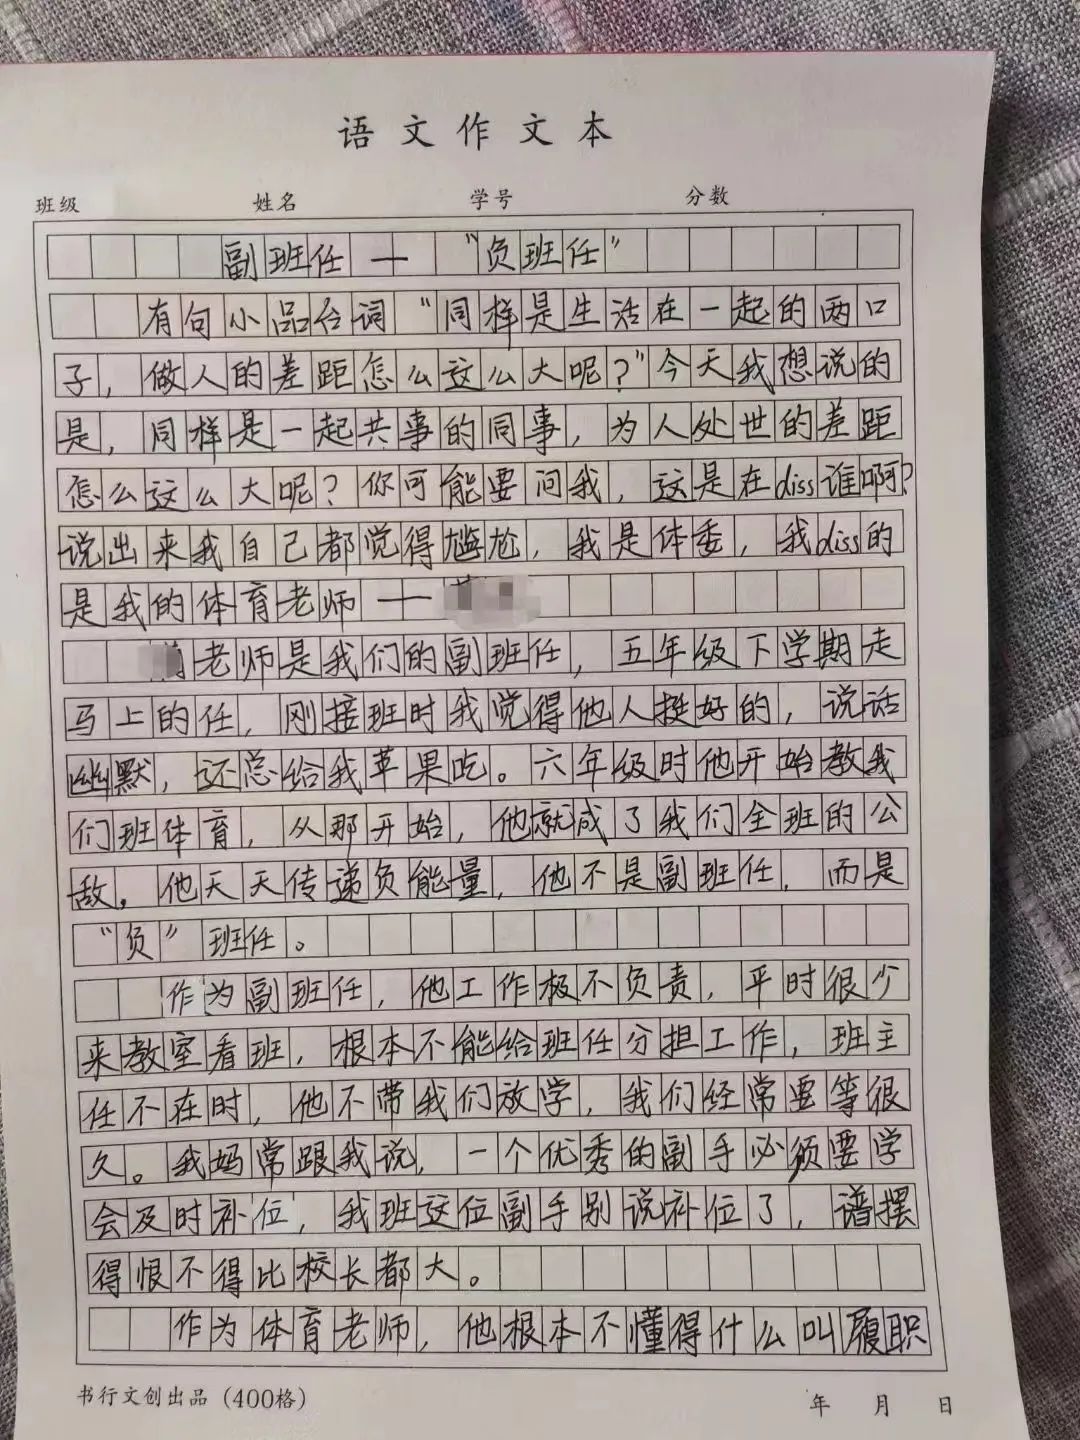 语文作文本
班级 姓名 学号 分数
副班任—“负班任”
有句小品台词“同样是生活在一起的两口
子，做人的差距怎么这么大呢？”今天我想说的
是，同样是一起共事的同事，为人处世的差距
怎么这么大呢？你可能要问我，这是在diss谁啊？
说出来我自己都觉得尴尬，我是体委，我diss的
是我的体育老师—
老师是我们的副班任，五年级下学期走
马上的任，刚接班时我觉得他人挺好的，说话
幽默，还总给我苹果吃。六年级时他开始教我
们班体育，从那开始，他就成了我们全班的公
敌。他天天传递负能量，他不是副班任，而是
“负”班任。
作为副班任，他工作极不负责，平时很少
来教室看班，根本不能给班任分担工作，班主
任不在时，他不带我们放学，我们经常要等很
久。我妈常跟我说，一个优秀的副手必须要学
会及时补位，我班这位副手别说补位了，谱摆
得恨不得比校长都大。
作为体育老师，他根本不懂得什么叫履职
书行文创出品（400格） 年 月 日